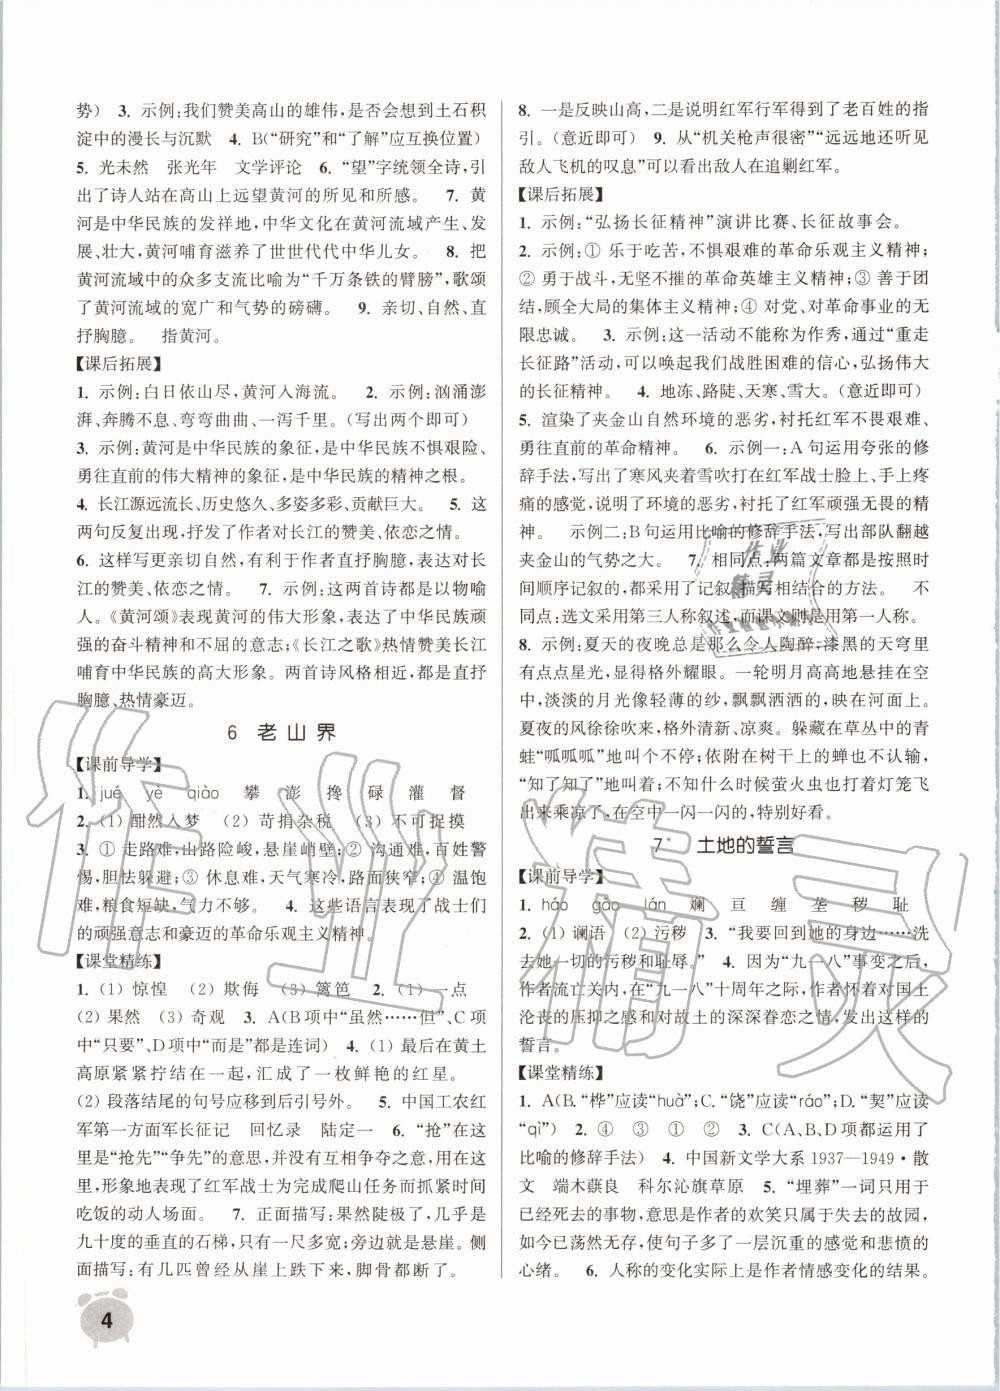 势)　3. 示例:我们赞美高山的雄伟,是否会想到土石积
淀中的漫长与沉默　4. B(“研究”和“了解”应互换位置)
5. 光未然　张光年　文学评论　6. “望”字统领全诗,引
出了诗人站在高山上远望黄河的所见和所感。　7. 黄
河是中华民族的发祥地,中华文化在黄河流域产生、发
展、壮大,黄河哺育滋养了世世代代中华儿女。　8. 把
黄河流域中的众多支流比喻为“千万条铁的臂膀”,歌颂
了黄河流域的宽广和气势的磅礴。　9. 亲切、自然、直
抒胸臆。　指黄河。
【课后拓展】
1. 示例:白日依山尽,黄河入海流。　2. 示例:汹涌澎
湃、奔腾不息、弯弯曲曲、一泻千里。(写出两个即可)
3. 示例:黄河是中华民族的象征,是中华民族不畏艰险、
勇往直前的伟大精神的象征,是中华民族的精神之根。
4. 长江源远流长、历史悠久、多姿多彩、贡献巨大。　5. 这
两句反复出现,抒发了作者对长江的赞美、依恋之情。
6. 这样写更亲切自然,有利于作者直抒胸臆,表达对长
江的赞美、依恋之情。　7. 示例:这两首诗都是以物喻
人。《黄河颂》表现黄河的伟大形象,表达了中华民族顽
强的奋斗精神和不屈的意志;《长江之歌》热情赞美长江
哺育中华民族的高大形象。两首诗风格相近,都是直抒
胸臆、热情豪迈。
6 老山界
【课前导学】
1. jué　yè　qiào　攀　澎　搀　碌　灌　督
2. (1) 酣然入梦　(2) 苛捐杂税　(3) 不可捉摸
3. ① 走路难,山路险峻,悬崖峭壁;② 沟通难,百姓警
惕,胆怯躲避;③ 休息难,天气寒冷,路面狭窄;④ 温饱
难,粮食短缺,气力不够。　4. 这些语言表现了战士们
的顽强意志和豪迈的革命乐观主义精神。
【课堂精练】
1. (1) 惊惶　(2) 欺侮　(3) 篱笆　2. (1) 一点
(2) 果然　(3) 奇观　3. A(B项中“虽然……但”、C项
中“只要”、D项中“而是”都是连词)　4. (1) 最后在黄土
高原紧紧拧结在一起,汇成了一枚鲜艳的红星。
(2) 段落结尾的句号应移到后引号外。　5. 中国工农红
军第一方面军长征记　回忆录　陆定一　6. “抢”在这
里是“抢先”“争先”的意思,并没有相互争夺之意,用在
这里,形象地表现了红军战士为完成爬山任务而抓紧时间
吃饭的动人场面。　7. 正面描写:果然陡极了,几乎是
九十度的垂直的石梯,只有一尺多宽;旁边就是悬崖。侧
面描写:有几匹曾经从崖上跌下来,脚骨都断了。
8. 一是反映山高,二是说明红军行军得到了老百姓的指
引。(意近即可)　9. 从“机关枪声很密”“远远地还听见
敌人飞机的叹息”可以看出敌人在追剿红军。
【课后拓展】
1. 示例:“弘扬长征精神”演讲比赛、长征故事会。
2. 示例:① 乐于吃苦,不惧艰难的革命乐观主义精神;
② 勇于战斗,无坚不摧的革命英雄主义精神;③ 善于团
结,顾全大局的集体主义精神;④ 对党、对革命事业的无
限忠诚。　3. 示例:这一活动不能称为作秀,通过“重走
长征路”活动,可以唤起我们战胜困难的信心,弘扬伟大
的长征精神。　4. 地冻、路陡、天寒、雪大。(意近即可)
5. 渲染了夹金山自然环境的恶劣,衬托红军不畏艰难、
勇往直前的革命精神。　6. 示例一:A句运用夸张的修
辞手法,写出了寒风夹着雪吹打在红军战士脸上、手上疼
痛的感觉,说明了环境的恶劣,衬托了红军顽强无畏的精
神。　示例二:B句运用比喻的修辞手法,写出部队翻越
夹金山的气势之大。　7. 相同点:两篇文章都是按照时
间顺序记叙的,都采用了记叙、描写相结合的方法。　不
同点:选文采用第三人称叙述,而课文则是用第一人称。
8. 示例:夏天的夜晚总是那么令人陶醉,漆黑的天穹里
有点点星光,显得格外耀眼。一轮明月高高地悬挂在空
中,淡淡的月光像轻薄的纱,飘飘洒洒的,映在河面上。
夏夜的风徐徐吹来,格外清新、凉爽。躲藏在草丛中的青
蛙“呱呱呱”地叫个不停;依附在树干上的蝉也不认输,
“知了知了”地叫着;不知什么时候萤火虫也打着灯笼飞
出来乘凉了,在空中一闪一闪的,特别好看。
7* 土地的誓言
【课前导学】
1. háo　gào　lán　斓　亘　缠　垄　秽　耻
2. (1) 谰语　(2) 污秽　3. “我要回到她的身边……洗
去她一切的污秽和耻辱。”　4. 因为“九一八”事变之后,
作者流亡关内,在“九一八”十周年之际,作者怀着对国土
沦丧的压抑之感和对故土的深深眷恋之情,发出这样的
誓言。
【课堂精练】
1. A(B.“桦”应读“huà”;C.“饶”应读“ráo”;D.“契”应读
“qì”)　2. ④　③　①　②　3. C(A、B、D项都运用了
比喻的修辞手法)　4. 中国新文学大系1937—1949·散
文　端木蕻良　科尔沁旗草原　5. “埋葬”一词只用于
已经死去的事物,意思是作者的欢笑只属于失去的故园,
如今已荡然无存,使句子多了一层沉重的感觉和悲愤的
心绪。　6. 人称的变化实际上是作者情感变化的结果。
4
作业精灵
作业
精灵